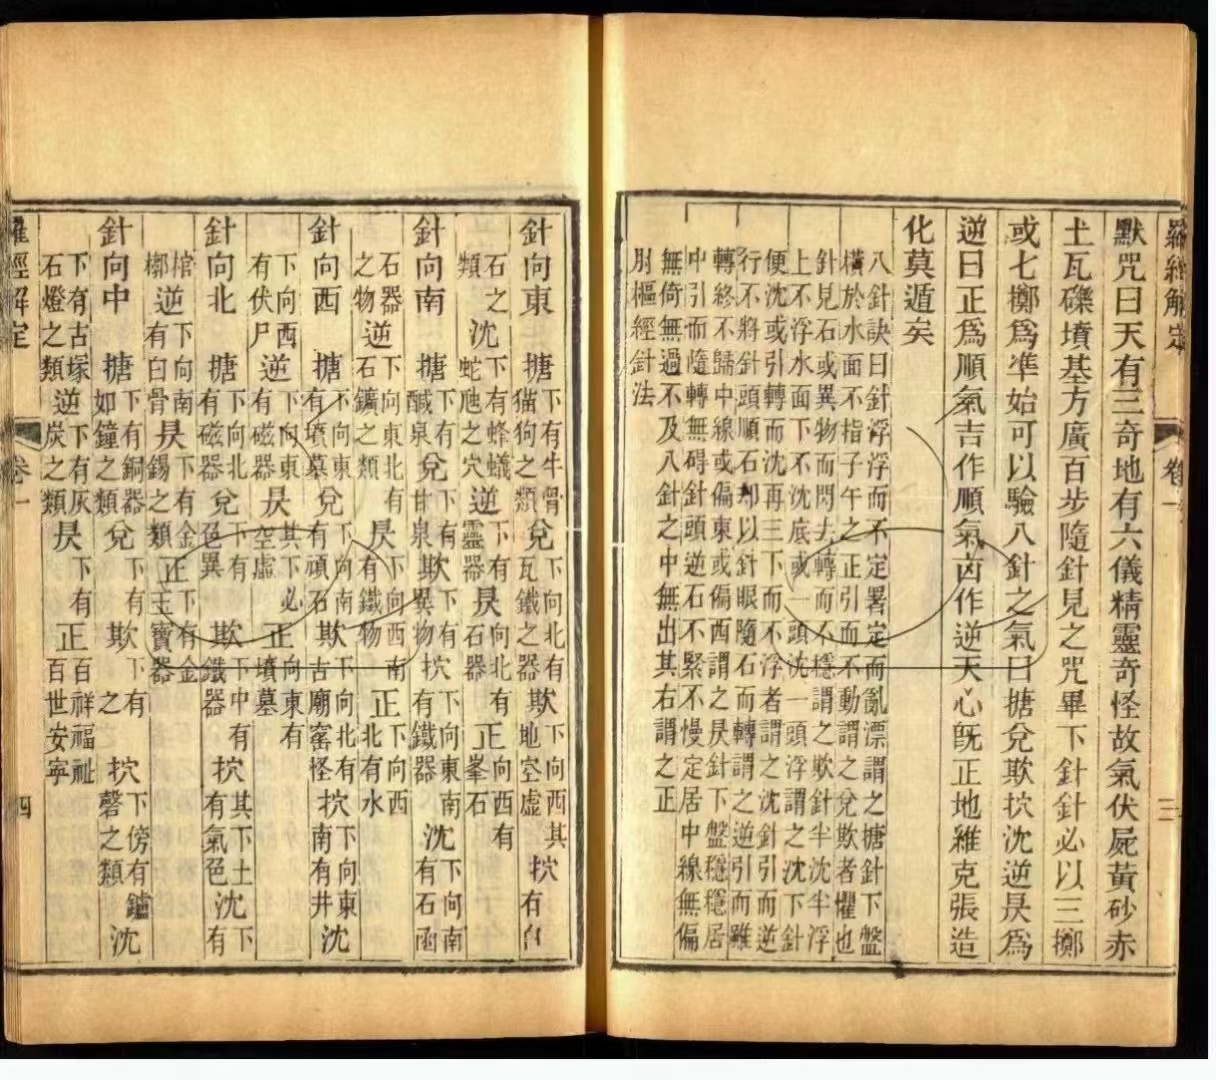 羅經解定 卷一 三
默咒曰天有三奇地有六儀精靈奇怪故氣伏屍黃砂赤
土瓦礫墳基方廣百步隨針見之咒畢下針針必以三擲
或七擲為凖始可以驗八針之氣曰搪兌欺抭沈逆昃為
逆曰正為順氣吉作順氣凶作逆天心既正地維克張造
化莫遁矣
八針訣曰針浮浮而不定署定而亂漂謂之搪針下盤
橫於水面不指子午之正引而不動謂之兌欺者懼也
針見石或異物而閃去轉而不穩謂之欺針半沈半浮
上不浮水面下不沈底或一頭沈一頭浮謂之沈下針
便沈或引轉而沈再三下而不浮者謂之沈針引而逆
行不將針頭順石却以針眼隨石而轉謂之逆引而雖
轉終不歸中線或偏東或偏西謂之昃針下盤穩穩居
中引而隨轉無碍針頭逆石不緊不慢定居中線無偏
無倚無過不及八針之中無出其右謂之正
刖樞經針法
針向東 搪下有牛骨猫狗之類兌下向北有瓦鐵之器欺下向西其地空虛抭有
石之類沈下有蜂蟻蛇虺之穴逆下有靈器昃向北有石器正向西有峯石
針向南 搪下有醎泉兌下有甘泉欺下有異物抭下向東南有鐵器沈下向南有石函
石器之物逆下向東北有石鑛之類昃下向西南有鐵物正下向西北有水
針向西 搪下向東有墳墓兌下向南有頑石欺下向北有古廟窑怪抭下向東南有井沈
下向西有伏尸逆下向東有磁器昃其下必空虛正向東有墳墓
針向北 搪下向北有磁器兌下有色異欺下中有鐵器抭其下土有氣色沈下有
棺槨逆下向南有白骨昃下有金錫之類正下有金玉寶器
針向中 搪下有銅器如鐘之類兌下有欺下有之抭下傍有鑪磬之類沈
下有古塚石燈之類逆下有灰炭之類昃下有正百祥福祉百世安寧
羅經解定 卷一 四